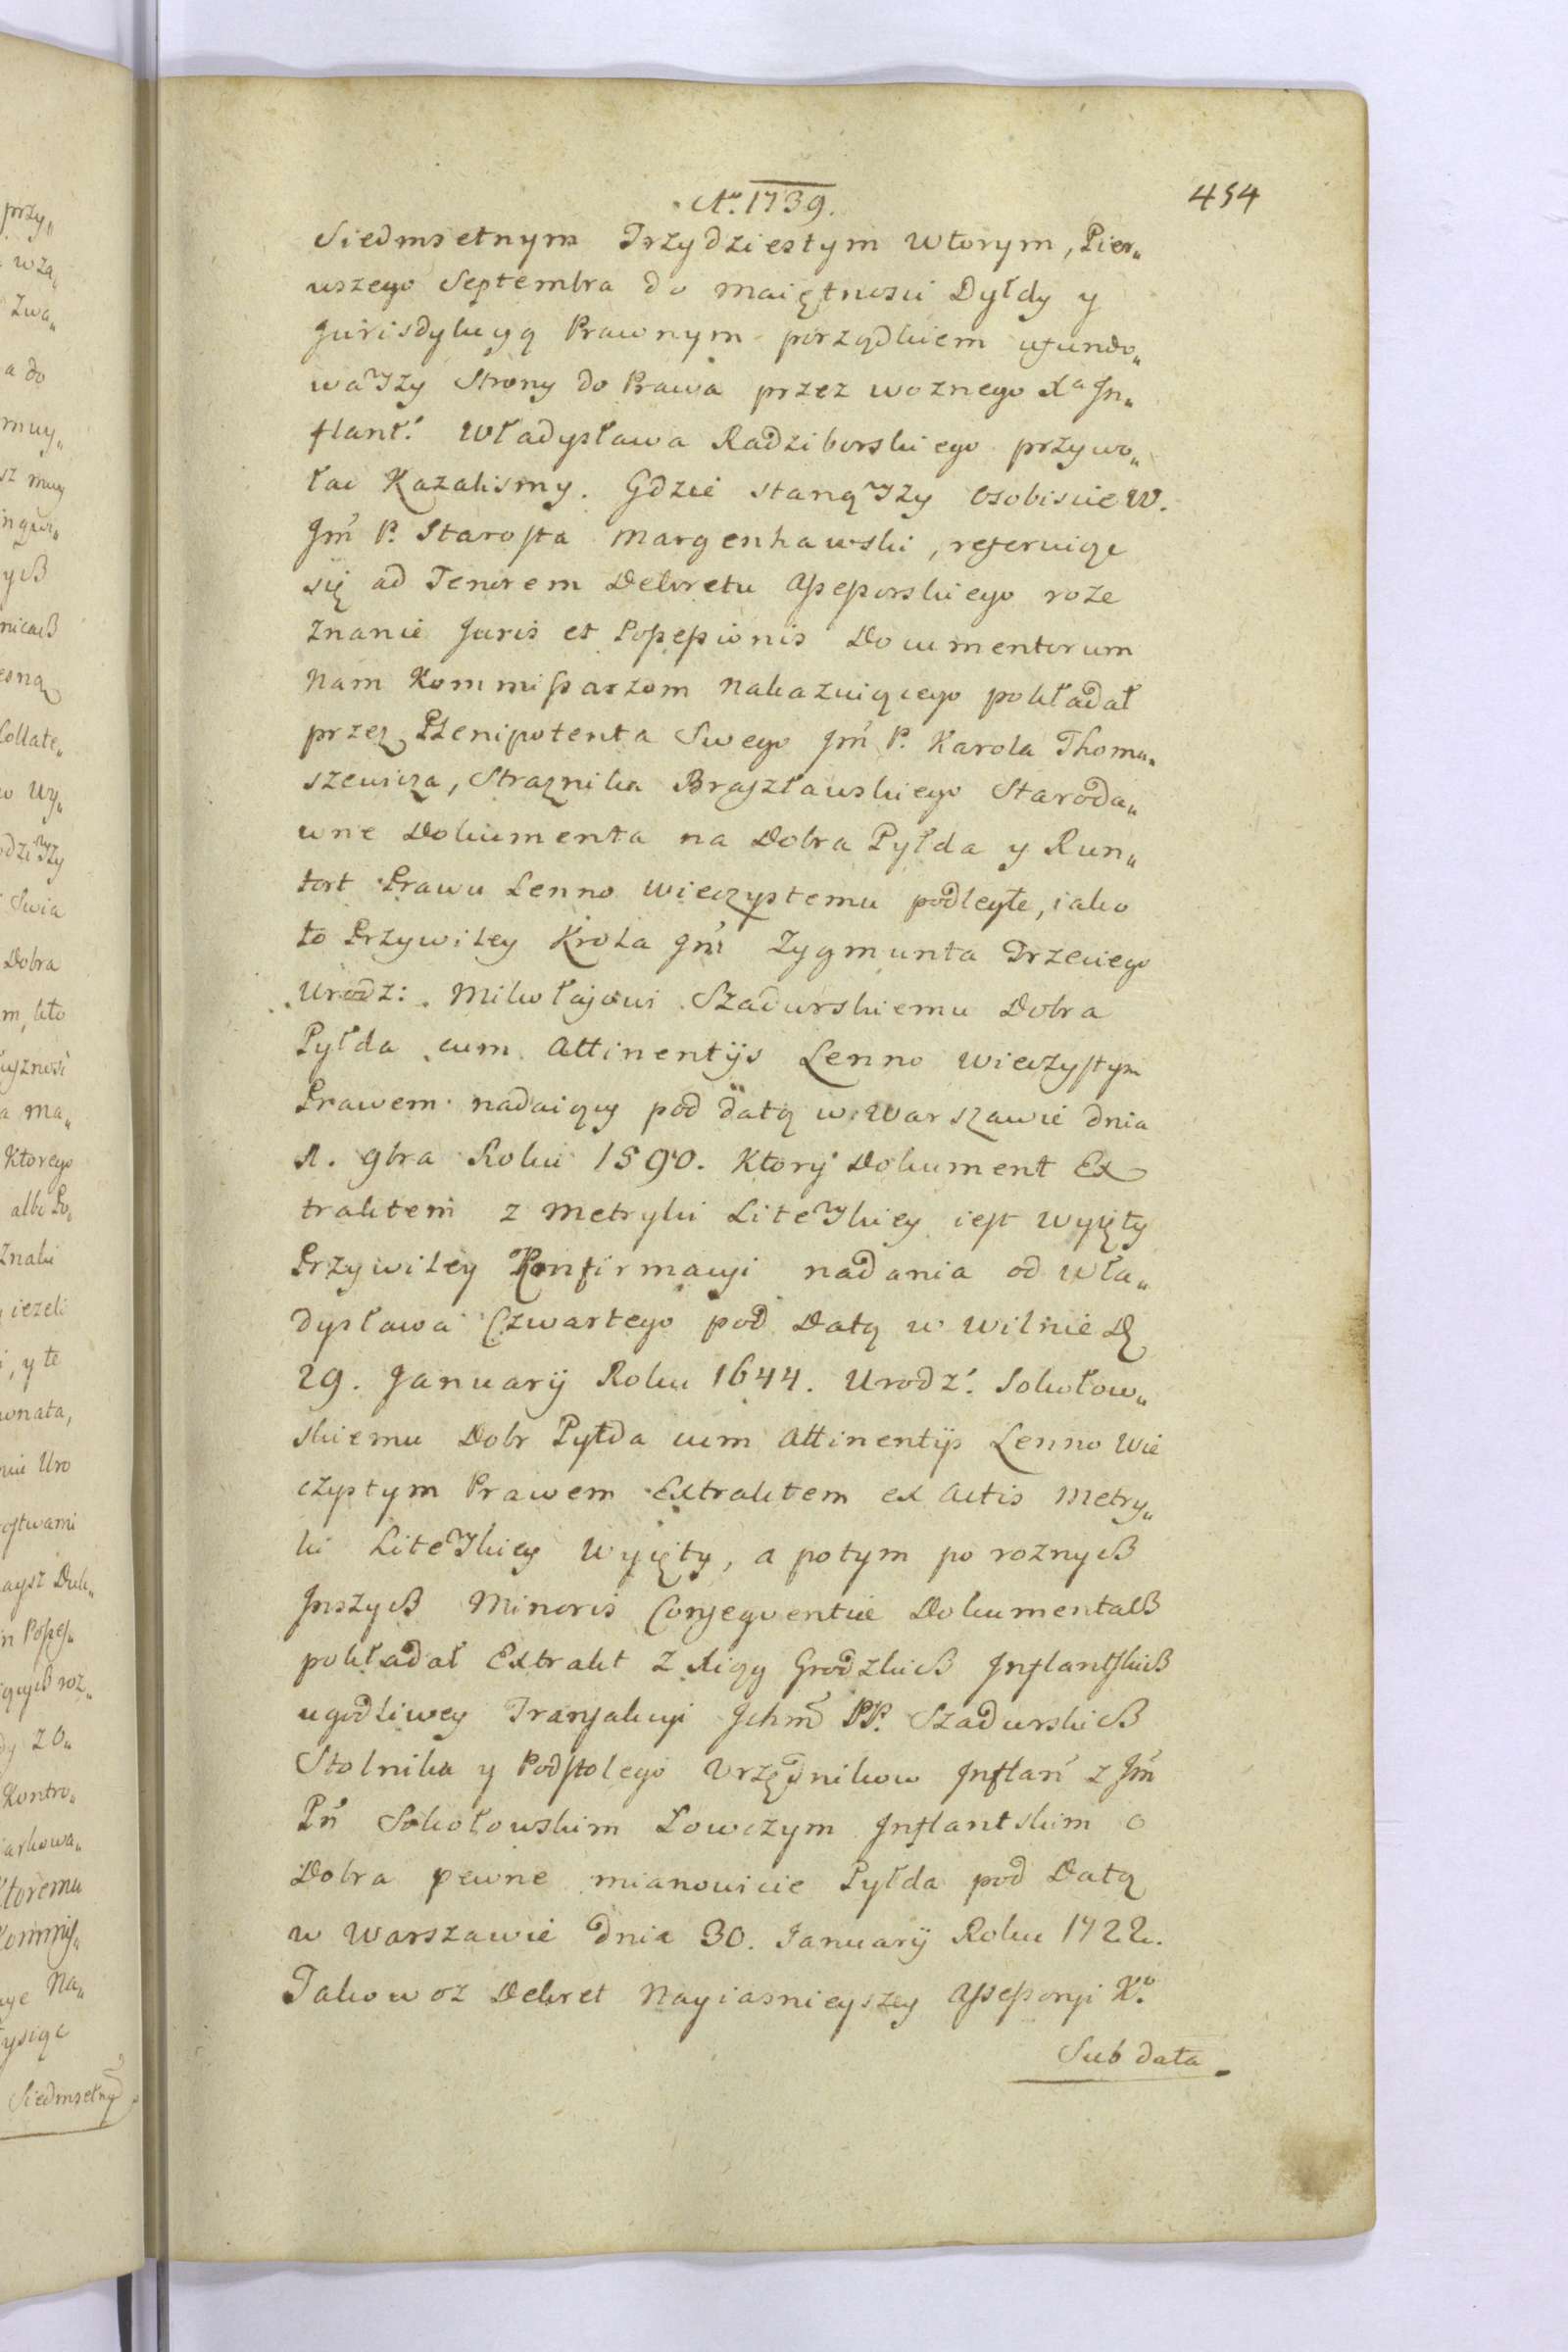 Ao. 1739.
454
Siedmsetnym Trzydziestym wtorym, Pier„
wszego Septembra do maiętnosci Dyłdy y
Jurisdykcyą Prawnym porządkiem ufundo„
wawszy Strony do Prawa przez woznego Xa In„
flant: Władysława Radziborskiego przywo„
łac Kazalismy. Gdzie stanąwszy osobiscie W.
Jm̃ P. Starosta Margenhawski, referuiąc
się ad Tenorem Dekretu Assessorskiego roze
znanie Juris et Possessionis Documentorum
nam Kommissarzom nakazuiącego pokładał
przez Plenipotenta Swego Jm̃ P. Karola Thoma„
szewicza, Straznika Brasławskiego Staroda„
wne Dokumenta na Dobra Pyłda y Run„
tort Prawu Lenno wieczystemu podległe, iako
to Przywiley Krola Jm̃ Zygmunta Trzeciego
Urodz: Mikołajowi Szadurskiemu Dobra
Pyłda cum Attinentijs Lenno wieczystym
Prawem nadaiący pod datą w Warszawie dnia
1. 9bra Roku 1590. Ktory Dokument Ex
traktem z Metryki Litewskiey iest wyięty
Przywiley Konfirmacyi nadania od Wła„
dysława Czwartego pod Datą w Wilnie D.
29. January Roku 1644. Urodz: Sokołow„
skiemu Dobr Pyłda cum Attinentijs Lenno Wie
czystym Prawem Extraktem ex Actis Metry„
ki Litewskiey Wyięty, a potym po roznych
Inszych Minoris Consequentiae Dokumentach
pokładał Extrakt z Xiąg Grodzkich Inflantskich
ugodliwey Transakcyi Ichm̃ PP. Szadurskich
Stolnika y Podstolego Urzędnikow Inflań z Jm̃
Pñ Sokołowskim Łowczym Inflantskim o
Dobra pewne mianowicie Pyłda pod Datą
w Warszawie dnia 30. January Roku 1722.
Takowoz Dekret Nayiasnieyszey Assessoryi Ko.
Sub data